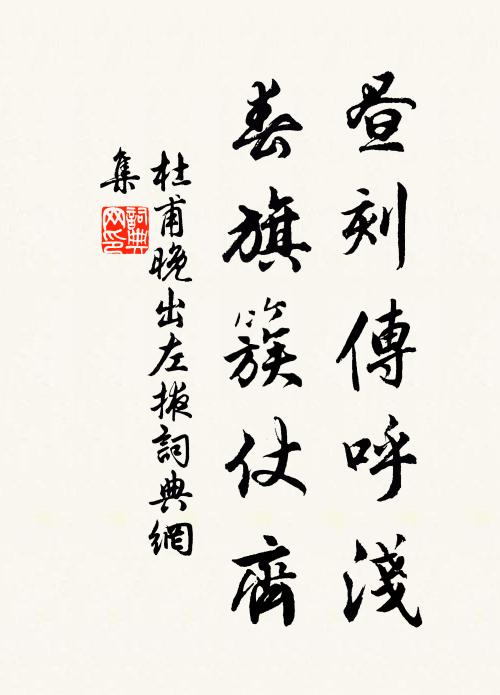 晝刻傳呼淺
春旗簇仗齊
杜甫晚出左掖詞典網
集
詞典
网印